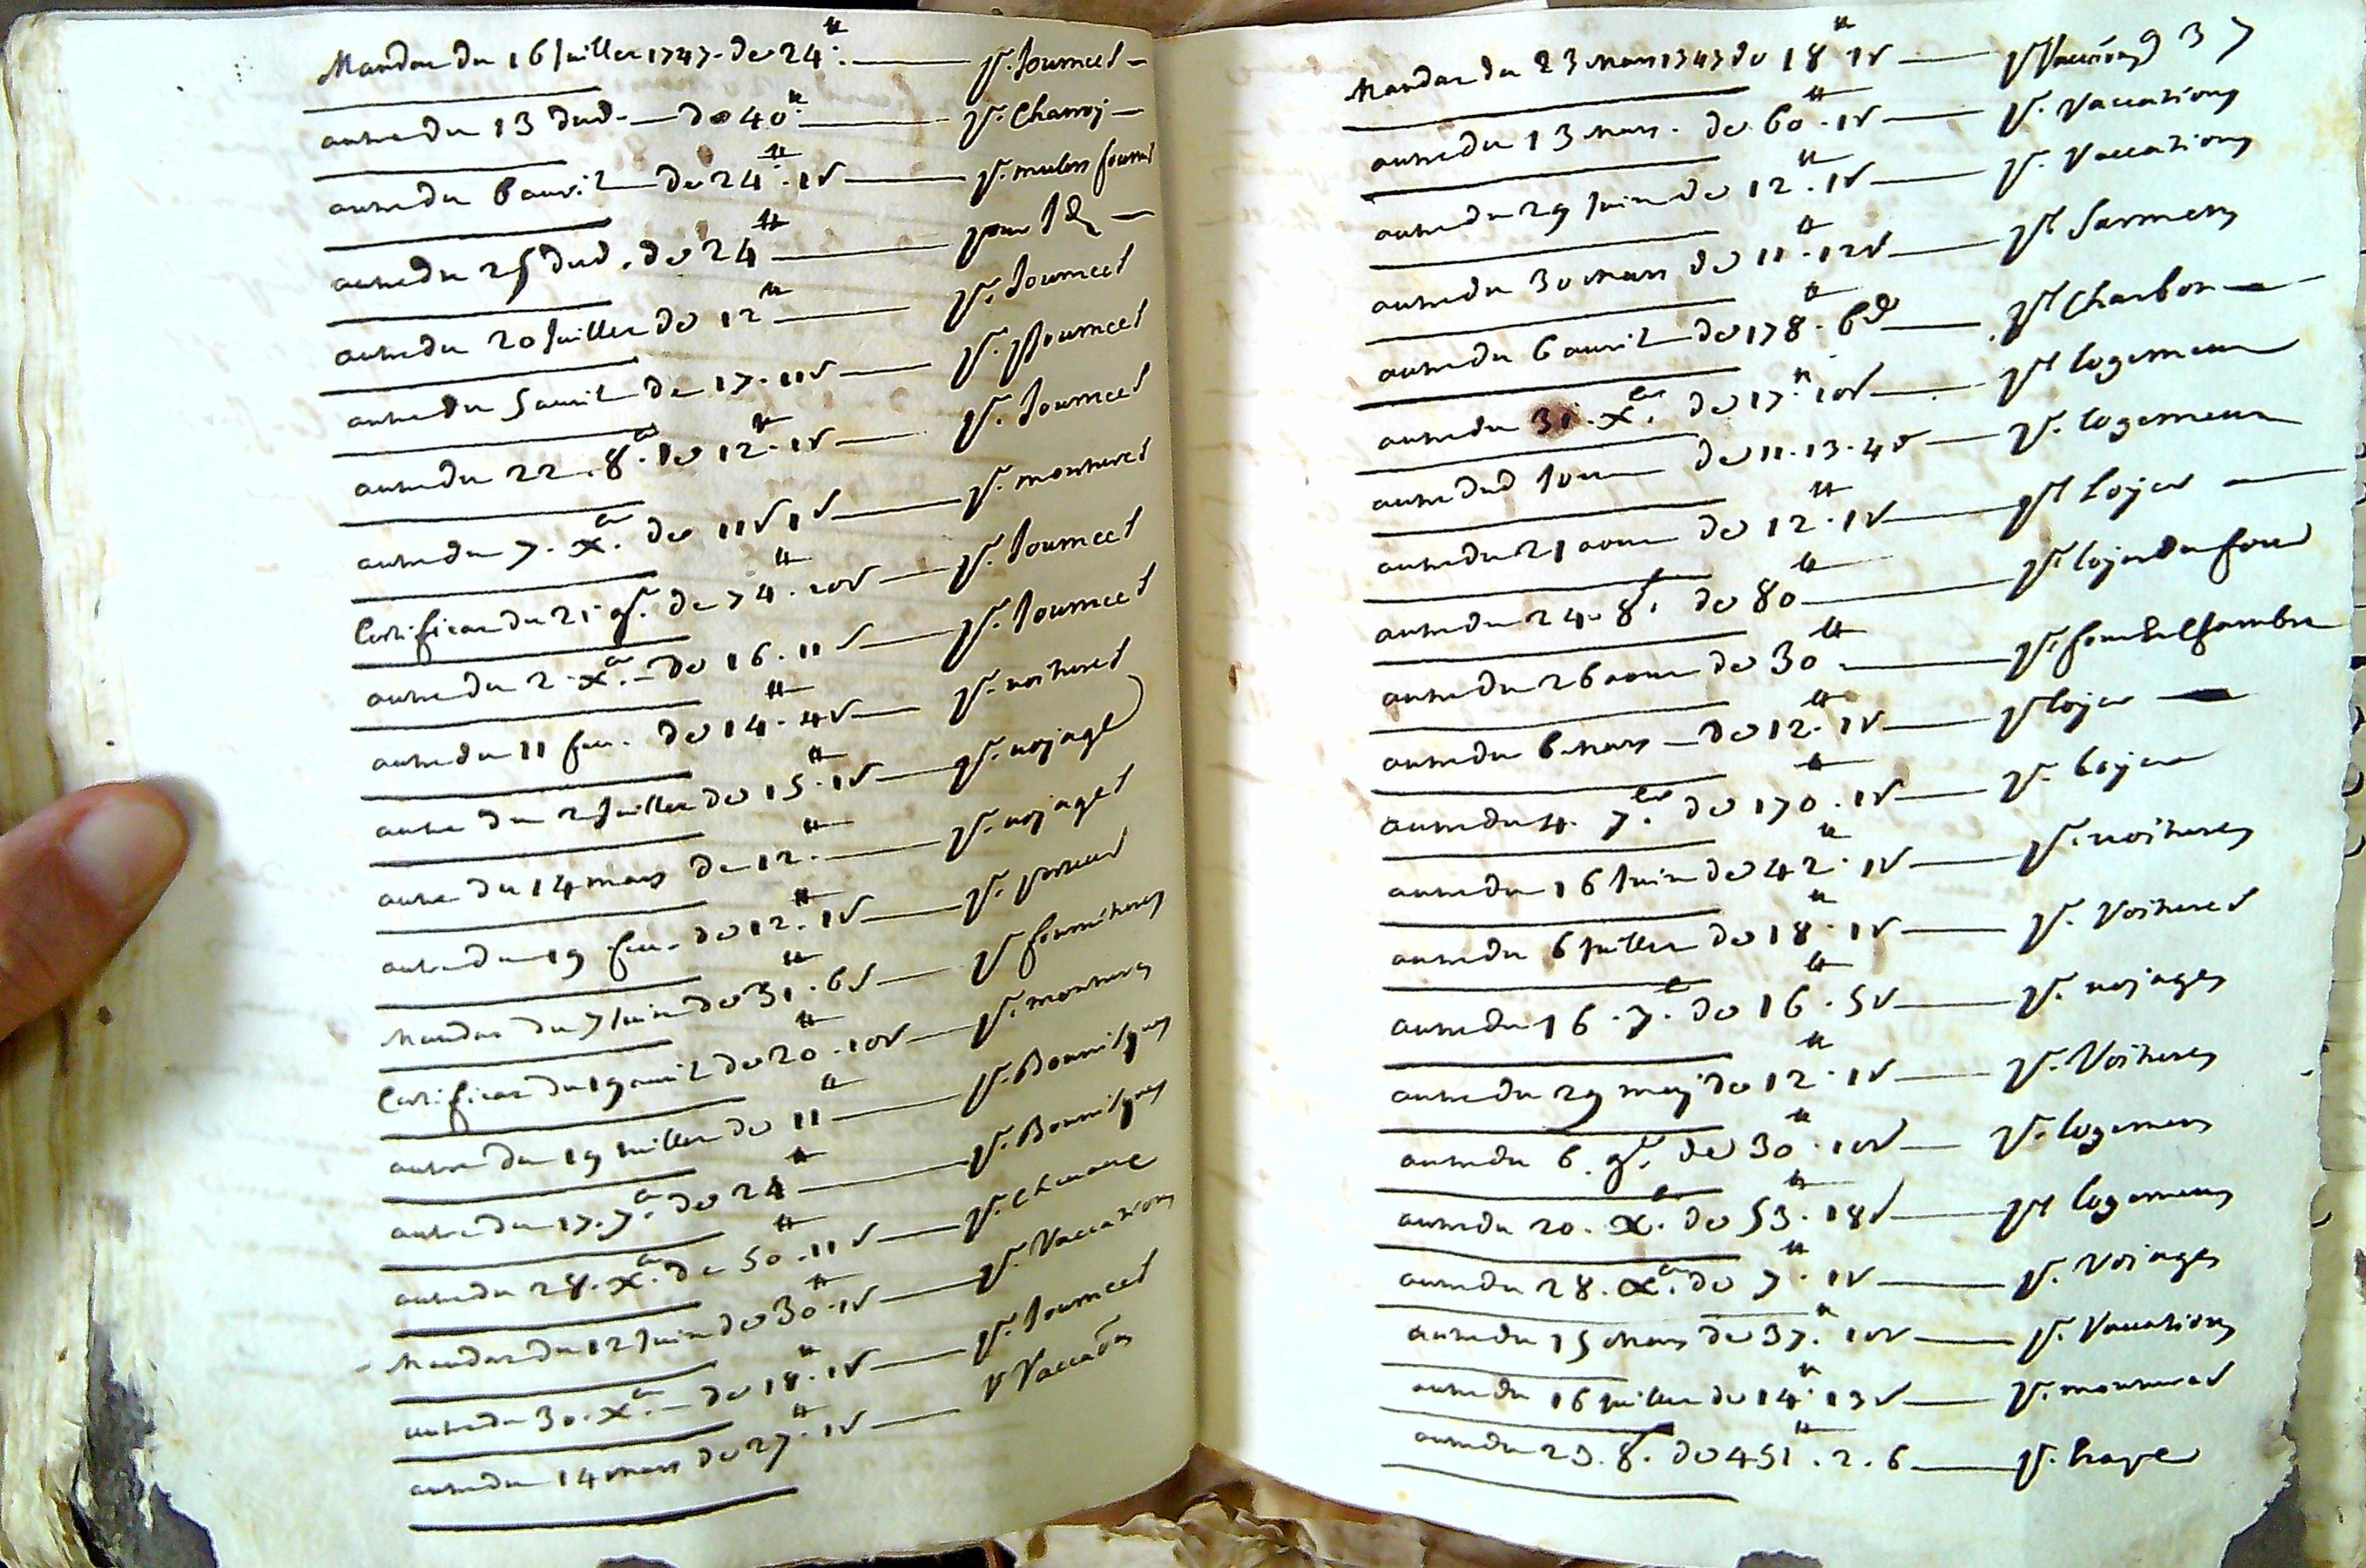 Mandat du 16 Juillet 1747. de 24 ᵗᵗ. — pr. Journeés —
autre du 13 dud. — de 40 ᵗᵗ. — pr. Charroj —
autre du 6 avril — de 24 ᵗᵗ. 1 s — pr. mulets fournis
autre du 25 dud. de 24 ᵗᵗ — pour Id —
autre du 20 Juillet de 12 ᵗᵗ — pr. Journeés
autre du 5 avril de 17. 11 s — pr. Journeés
autre du 22. 8.bre de 12 ᵗᵗ. 1 s — pr. Journeés
autre du 7. x.bre de 11 s 1 s — pr. montures
Certificat du 21. 9r. de 74 ᵗᵗ. 10 s — pr. Journeés
autre du 2. x.bre — de 16. 11 s — pr. Journeés
autre du 11 fev. de 14 ᵗᵗ. 4 s — pr. voitures
autre du 2 Juillet de 15 ᵗᵗ. 1 s — pr. vojage
autre du 14 mars de 12 ᵗᵗ. — pr. vojages
autre du 19 fev. de 12 ᵗᵗ. 1 s — pr.
Mandat du 7 Juin de 31 ᵗᵗ. 6 s — pr fournitures
Certificat du 19 avril de 20 ᵗᵗ. 10 s — pr. montures
autre du 19 Juillet de 11 ᵗᵗ — pr. Bourriques
autre du 17. 7.bre de 24 ᵗᵗ — pr. Bourriques
autre du 28. x.bre de 50 ᵗᵗ. 11 s — pr.
Mandat du 12 Juin de 30 ᵗᵗ. 1 s — pr. Vaccations
autre du 30. x.bre — de 18 ᵗᵗ. 1 s — pr. Journeés
autre du 14 mars de 27 ᵗᵗ. 1 s — pr Vaccaons
Mandat du 23 mars 1747 de 18 ᵗᵗ 1 s — pr Vaccaons 937
autre du 13 mars. de 60 ᵗᵗ. 1 s — pr. Vaccations
autre du 29 Juin de 12 ᵗᵗ. 1 s — pr. Vaccations
autre du 30 mars de 11 ᵗᵗ. 12 s — pr Sarmens
autre du 6 avril de 178 ᵗᵗ. 6 d — pr Charbon —
autre du 31. x.bre de 17 ᵗᵗ. 10 s — pr logement
autre dud Jour — de 11. 13. 4 d — pr. logement
autre du 21 aoust de 12 ᵗᵗ. 1 s — pr loyer —
autre du 24. 8r. de 80 ᵗᵗ — pr. loyer du four
autre du 26 aoust de 30 ᵗᵗ. — pr.
autre du 6 mars — de 12 ᵗᵗ. 1 s — pr loyer —
autre du 4. 7.bre de 170 ᵗᵗ. 1 s — pr. loyer
autre du 16 Juin de 42 ᵗᵗ. 1 s — pr. voitures
autre du 6 Juillet de 18 ᵗᵗ. 1 s — pr. Voitures
autre du 16. 7.bre de 16 ᵗᵗ. 5 s — pr. vojages
autre du 29 maj de 12 ᵗᵗ. 1 s — pr. Voitures
autre du 6. 9r. de 30 ᵗᵗ. 10 s — pr. logemens
autre du 20. x.bre de 53 ᵗᵗ. 18 s — pr logemens
autre du 28. x.bre de 7 ᵗᵗ. 1 s — pr. Vojages
autre du 15 mars de 37 ᵗᵗ. 10 s — pr. Vaccations
autre du 16 Juillet de 14 ᵗᵗ. 13 s — pr. montures
autre du 23. 8r. de 451 ᵗᵗ. 2. 6 — pr.